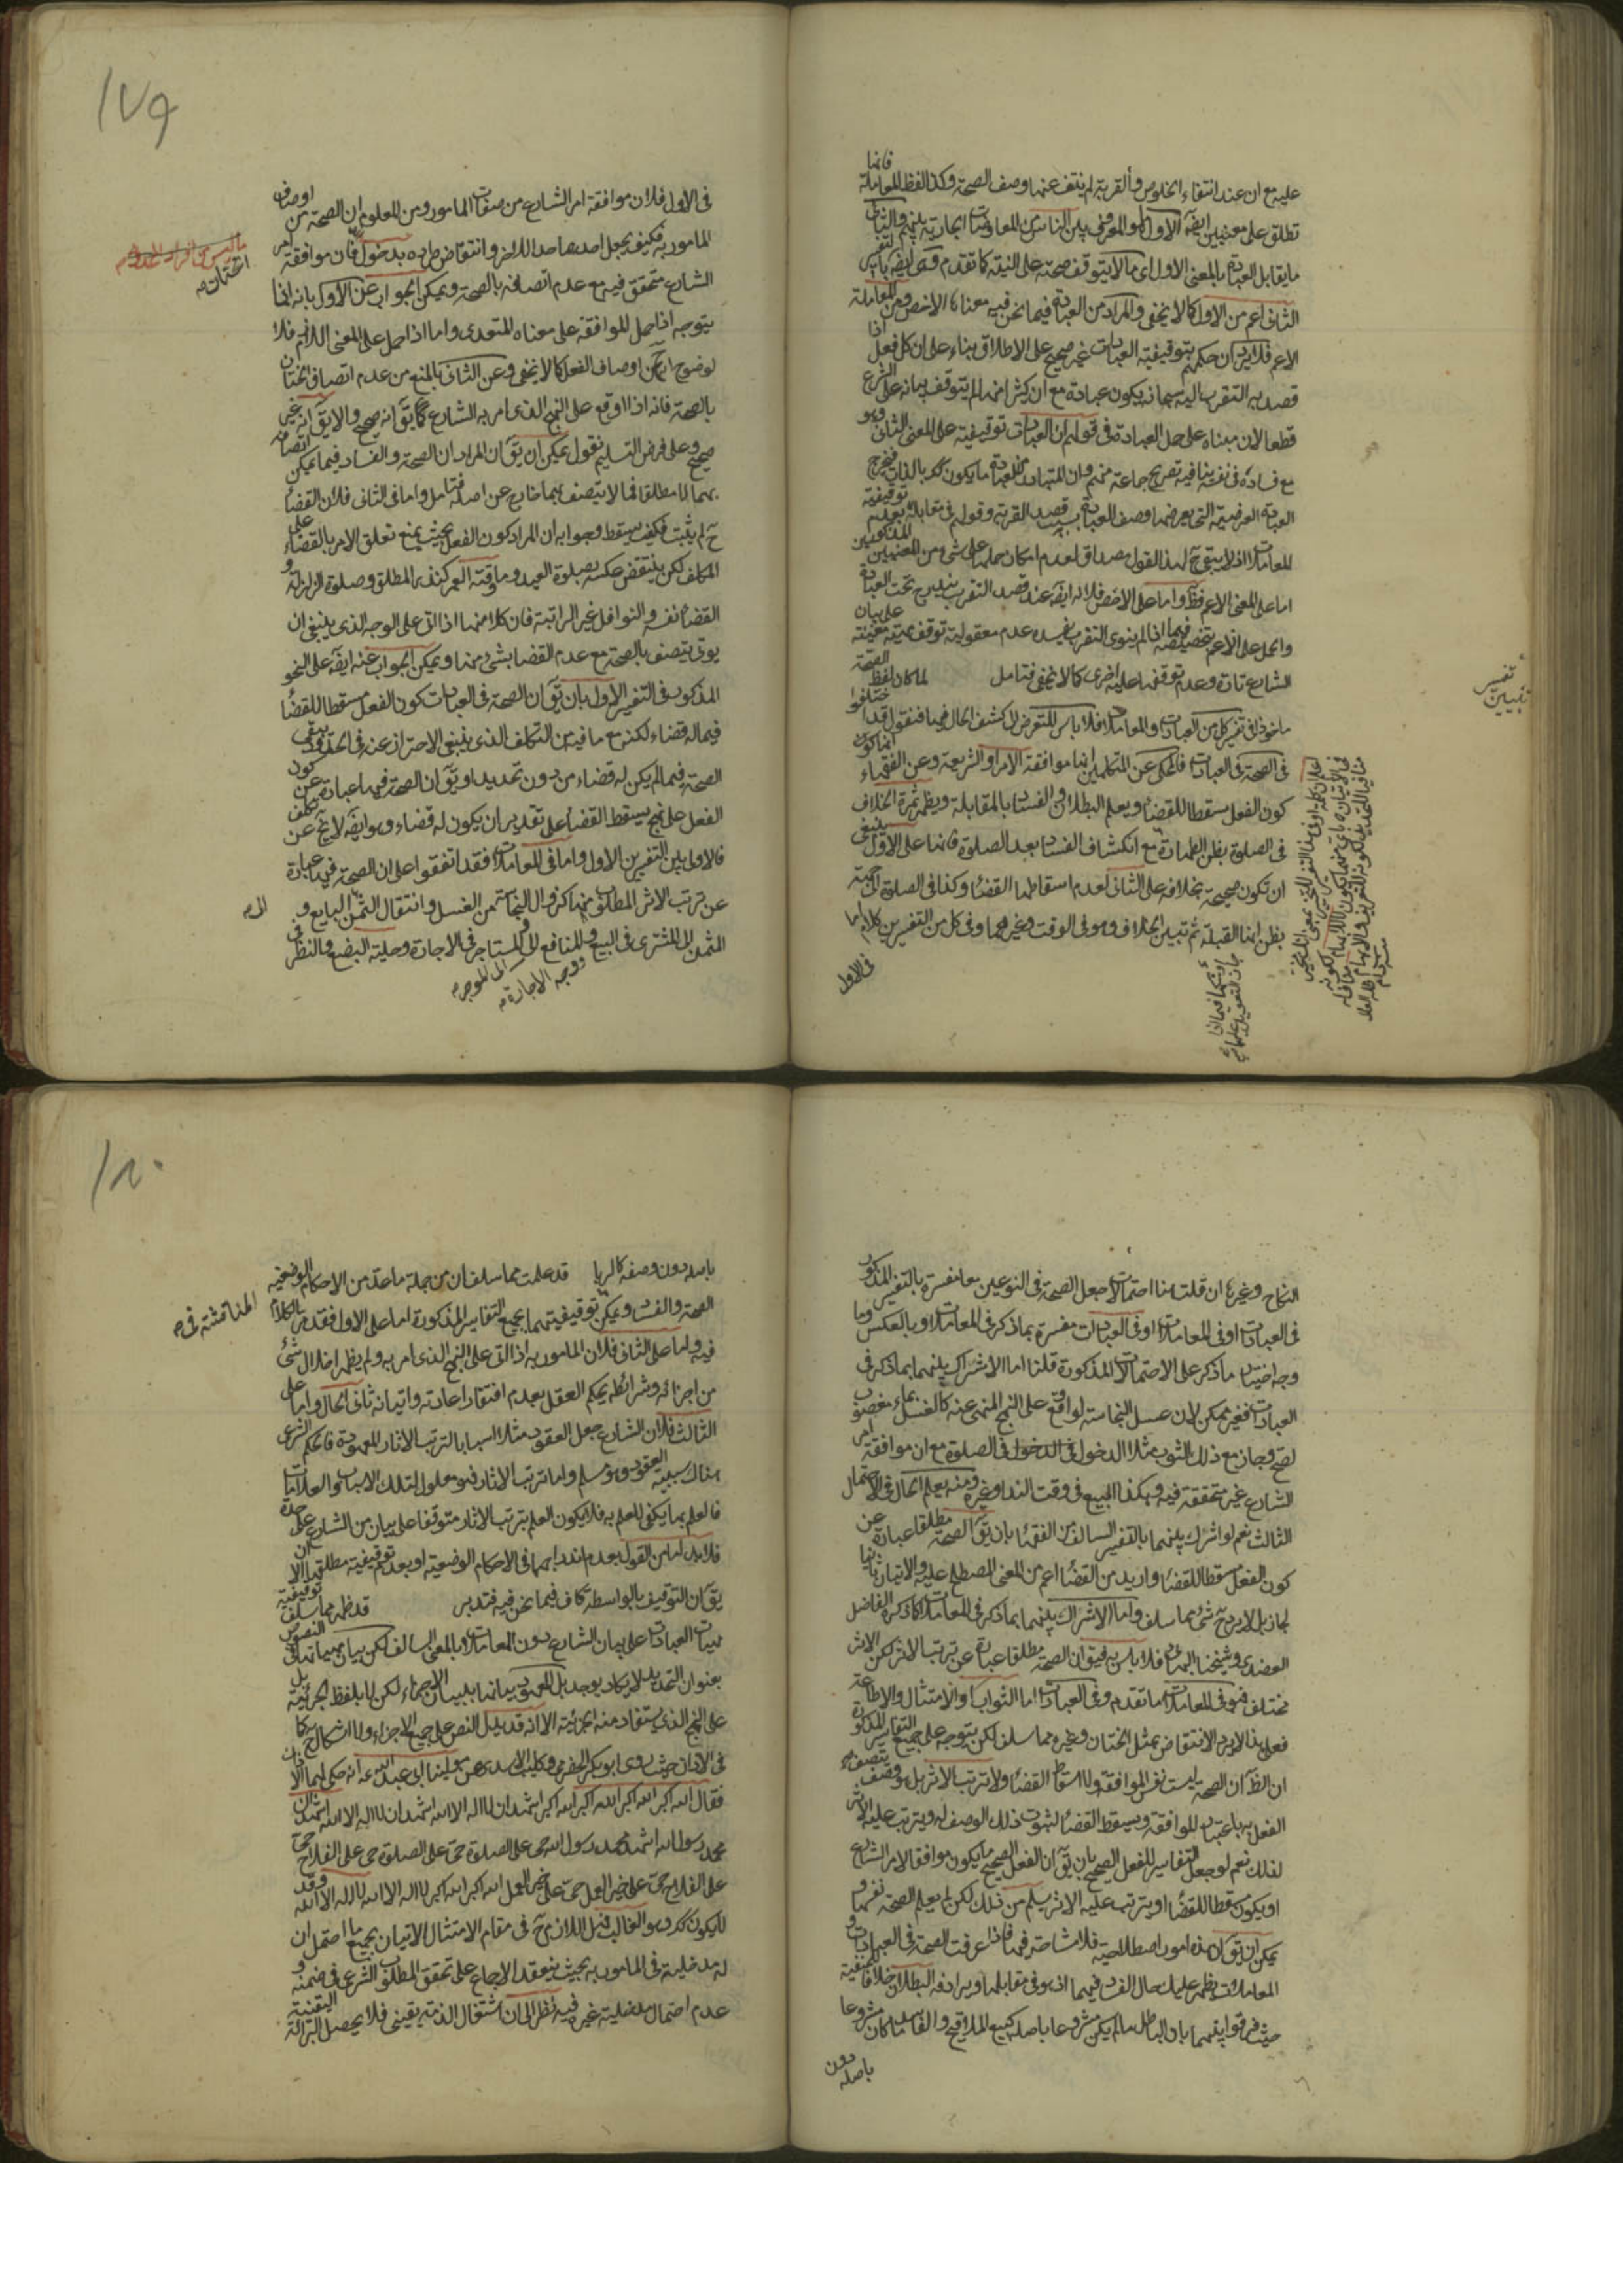 عليه مع ان عند انتفاء الخلوص والقربة لم ينتف عنها وصف الصحة وكذا لفظ المعاملة فانها
تطلق على معنيين ايضا الاول هو المعروف بين الناس من المعاوضات الجارية بينهم والثاني
ما يقابل العبادة بالمعنى الاول اي ما لا يتوقف صحته على النية كما تقدم
الثاني اعم من الاول كما لا يخفى والمراد من العبادة فيما نحن فيه معناها الاخص ومن المعاملة
الاعم فلا يرد ان حكمهم بتوقيفية العبادات غير صحيح على الاطلاق بناء على ان كل فعل اذا
قصد به التقرب اليه سبحانه يكون عبادة مع ان كثيرا منها لم يتوقف بيانه على الشرع
قطعا لان مبناه على حمل العبادة في قولهم ان العبادات توقيفية على المعنى الثاني وهو
مع فساده في نفسه ينافيه تصريح جماعة منهم وان المتبادر من العبادة ما يكون كك بالذات فيخرج
العبادة العرضية التي يعرضها وصف العبادة بسبب قصد القربة وقولهم في مقابله بعدم توقيفية
المعاملات اذ لا يبقى ح لهذا القول مصداق لعدم امكان حملها على شيء من المعنيين المذكورين
اما على المعنى الاعم فظ واما على الاخص فلانه ايضا عند قصد التقرب يندرج تحت العبادة
والحمل على الاعم بتخصيصه فيما اذا لم ينوى التقرب يفسده عدم معقولية توقف صحة معينة على بيان
الشارع تارة وعدم توقفها عليه اخرى كما لا يخفى فتامل لما كان لفظ الصحة
ماخوذا في تفسير كل من العبادات والمعاملات فلا باس للتعرض لكشف الحال فيها فنقول قد اختلفوا
في الصحة في العبادات فالمحكى عن المتكلمين انها موافقة الامر او الشريعة وعن الفقهاء انها كون
كون الفعل مسقطا للقضاء ويعلم البطلان والفساد بالمقابلة ويظهر ثمرة الخلاف
في الصلوة بظن الطهارة مع انكشاف الفساد بعد الصلوة فانها على الاول ينبغي
ان تكون صحيحة بخلافه على الثاني لعدم اسقاطها القضاء وكذا في الصلوة الى جهة
بظن انها القبلة ثم تبين الخلاف وهو في الوقت وغيرهما وفي كل من التفسيرين كلام اما
في الاول
تفسير
١٧٩
في الاول فلان موافقة امر الشارع من صفات المامور ومن المعلوم ان الصحة من اوصاف
المامور به فكيف يجعل احدهما حدا للاخر وانتقاض طرده بدخول فان موافقة امر
الختان
الشارع متحقق فيه مع عدم اتصافه بالصحة ويمكن الجواب عن الاول بانه انما
يتوجه اذا حمل الموافقة على معناه المتعدى واما اذا حمل على المعنى اللازم فلا
لوضوح انه ح من اوصاف الفعل كما لا يخفى وعن الثاني بالمنع من عدم اتصاف الختان
بالصحة فانه اذا اوقع على النهج الذي امر به الشارع كما يق انه صحيح والا يق انه غير
صحيح وعلى فرض التسليم نقول يمكن ان يق ان المراد ان الصحة والفساد فيما يمكن اتصافه
بهما لا مطلقا فما لا يتصف بهما خارج عن اصله فتامل واما في الثاني فلان القضاء
ح لم يثبت فكيف يسقط وجوابه ان المراد كون الفعل بحيث يمنع تعلق الامر بالقضاء على
المكلف لكن ينتقض عكسه بصلوة العيد وما وقته العمر كنذر المطلق وصلوة الزلزلة و
القضاء نفسه والنوافل غير الراتبة فان كلا منها اذا اتى على الوجه الذي ينبغي ان
يوتى يتصف بالصحة مع عدم القضاء بشئ منها ويمكن الجواب عنه ايضا على النحو
المذكور في التفسير الاول بان يق ان الصحة في العبادات كون الفعل مسقطا للقضاء
فيما له قضاء لكنه مع ما فيه من التكلف الذي ينبغي الاحتراز عنه في الحدود يبقى
الصحة فيما لم يكن له قضاء من دون تحديد او يق ان الصحة فيها عبارة عن كون
الفعل على نهج يسقط القضاء على تقدير ان يكون له قضاء وهو ايضا لا يخ عن تكلف
فالاولى بين التفسيرين الاول واما في المعاملات فقد اتفقوا على ان الصحة فيها عبارة
عن ترتب الاثر المطلوب منها كزوال النجاسة من الغسل وانتقال الثمن الى البايع و
المثمن الى المشترى في البيع والمنافع الى المستاجر في الاجارة وحلية البضع والنظر في
ووجه الاجارة الى الموجر
النكاح وغيرها ان قلت هنا احتمالات جعل الصحة في النوعين معا مفسرة بالتفسير المذكور
في العبادات او في المعاملات او في العبادات مفسرة بما ذكر في المعاملات او بالعكس وما
وجه اختيار ما ذكر على الاحتمالات المذكورة قلنا اما الاشتراك بينهما بما ذكر في
العبادات فغير ممكن لان غسل النجاسة لو وقع على النهج المنهى عنه كالغسل بماء مغصوب
لصح وجاز مع ذلك الثوب مثلا الدخول في الصلوة مع ان موافقة امر
الشارع غير متحققة فيه وهكذا البيع في وقت النداء وغيره ومنه يعلم الحال في الاحتمال
الثالث نعم لو اشترك بينهما بالتفسير السالف من الفقهاء بان يق الصحة مطلقا عبارة عن
كون الفعل مسقطا للقضاء واريد من القضاء اعم من المعنى المصطلح عليه والاتيان ثانيا
لجاز بل لا يرد ح شئ مما سلف واما الاشتراك بينهما بما ذكر في المعاملات كما ذكره الفاضل
العضدى وشيخنا البهائي فلا باس به فيق ان الصحة مطلقا عبارة عن ترتب الاثر لكن الاثر
مختلف فهو في المعاملات ما تقدم وفي العبادات اما الثواب او الامتثال والاطاعة
فعلى هذا لا يرد الانتقاض بمثل الختان وغيره مما سلف لكن يتوجه على جميع التفاسير المذكورة
ان الظ ان الصحة ليست نفس الموافقة ولا اسقاط القضاء ولا ترتب الاثر بل وصف يتصف
الفعل به باعتبار الموافقة ويسقط القضاء لثبوت ذلك الوصف له ويترتب عليه الاثر
لذلك نعم لو جعل التفاسير للفعل الصحيح بان يق ان الفعل الصحيح ما يكون موافقا لامر الشارع
او يكون مسقطا للقضاء او يترتب عليه الاثر يسلم من ذلك لكن لم يعلم الصحة نفسها و
يمكن ان يق ان هذه امور اصطلاحية فلا مشاحة فيها فاذا عرفت الصحة في العبادات و
المعاملات يظهر عليك حال الفساد فيهما اذ هو في مقابلها ويرادفه البطلان خلافا للحنفية
حيث فرقوا بينهما بان الباطل ما لم يكن مشروعا باصله كبيع الملاقيح والفاسد ما كان مشروعا
باصله دون
١٨٠
باصله دون وصفه كالربا قد علمت مما سلف ان من جملة ما عد من الاحكام الوضعية
الصحة والفساد ويمكن توقيفيتهما بجميع التفاسير المذكورة اما على الاول فقد مر الكلام
المناقشة في
فيه واما على الثاني فلان المامور به اذا اتى على النهج الذي امر به ولم يظهر اخلال شئ
من اجزائه وشرائطه يحكم العقل بعدم افتقار اعادته واتيانه ثاني الحال واما على
الثالث فلان الشارع جعل العقود مثلا اسبابا لترتب الاثار المعهودة فالحكم الشرعي
هناك سببية العقود وهو مسلم واما ترتب الاثار فهو معلول لتلك الاسباب والعلامات
فالعلم بها يكفى للعلم به فلا يكون العلم بترتب الاثار متوقفا على بيان من الشارع على حدة
فلا بد اما من القول بعدم اندراجهما في الاحكام الوضعية او بعدم توقيفية مطلقها الا ان
يق ان التوقيف بالواسطة كاف فيما نحن فيه فتدبر قد ظهر مما سلف توقيفية
مهيات العبادات على بيان الشارع دون المعاملات بالمعنى السالف لكن بيان مهياتها في النصوص
بعنوان التحديد لا يكاد يوجد بل المعهود بيانها ببيان الاجزاء لكن لا بلفظ الجزئية بل
على النهج الذي يستفاد منه الجزئية الا انه قد يدل النص على جميع الاجزاء ولا اشكال ح كما
في الاذان حيث روى ابو بكر الحضرمى وكليب الاسدى عن مولينا ابي عبد الله ع انه حكى لهما الاذان
فقال الله اكبر الله اكبر الله اكبر الله اكبر اشهد ان لا اله الا الله اشهد ان لا اله الا الله اشهد ان
محمدا رسول الله اشهد ان محمدا رسول الله حى على الصلوة حى على الصلوة حى على الفلاح حى
على الفلاح حى على خير العمل حى على خير العمل الله اكبر الله اكبر لا اله الا الله لا اله الا الله وقد
لا يكون كك وهو الغالب فهل اللازم ح في مقام الامتثال الاتيان بجميع ما احتمل ان
له مدخلية في المامور به بحيث ينعقد الاجماع على تحقق المطلوب الشرعي في ضمنه و
عدم احتمال مدخلية غيره فيه نظرا الى ان اشتغال الذمة يقيني فلا يحصل البرائة اليقينية